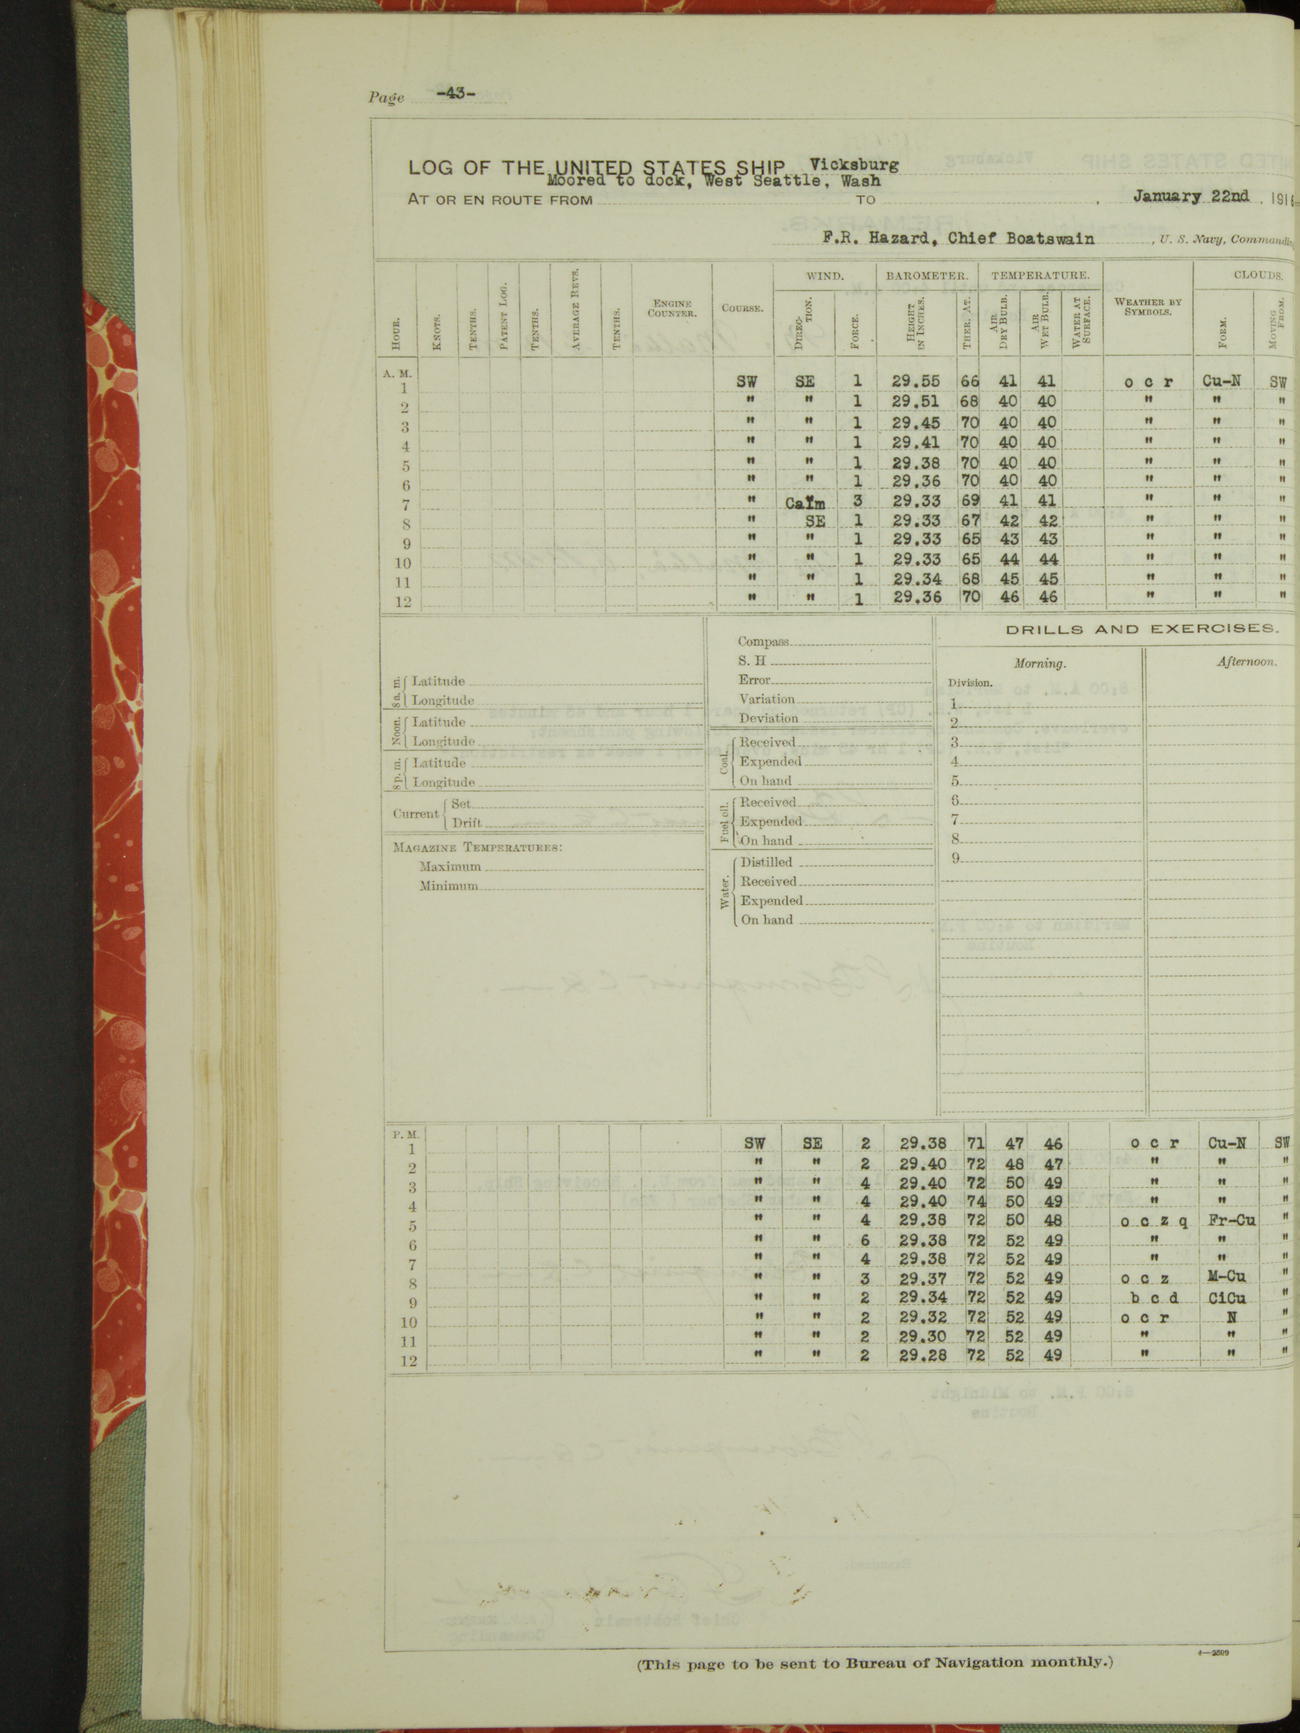 Page -43-
LOG OF THE UNITED STATES SHIP Vicksburg
Moored to dock, West Seattle, Wash
AT OR EN ROUTE FROM TO , January 22nd , 191
F.R. Hazard, Chief Boatswain , U. S. Navy, Commanding
HOUR. KNOTS. TENTHS. PATENT LOG. TENTHS. AVERAGE REVS. TENTHS. ENGINE COUNTER. COURSE. WIND. DIRECTION. FORCE. BAROMETER. HEIGHT IN INCHES. THER. AT. TEMPERATURE. AIR DRY BULB. AIR WET BULB. WATER AT SURFACE. WEATHER BY SYMBOLS. CLOUDS. FORM. MOVING FROM.
A. M.
1 SW SE 1 29.55 66 41 41 o c r Cu-N SW
2 " " 1 29.51 68 40 40 " " "
3 " " 1 29.45 70 40 40 " " "
4 " " 1 29.41 70 40 40 " " "
5 " " 1 29.38 70 40 40 " " "
6 " " 1 29.36 70 40 40 " " "
7 " Calm 3 29.33 69 41 41 " " "
8 " SE 1 29.33 67 42 42 " " "
9 " " 1 29.33 65 43 43 " " "
10 " " 1 29.33 65 44 44 " " "
11 " " 1 29.34 68 45 45 " " "
12 " " 1 29.36 70 46 46 " " "
8 a. m. Latitude
Longitude
Noon. Latitude
Longitude
8 p. m. Latitude
Longitude
Current Set
Drift
MAGAZINE TEMPERATURES:
Maximum
Minimum
Compass
S. H
Error
Variation
Deviation
Coal. Received
Expended
On hand
Fuel oil. Received
Expended
On hand
Water. Distilled
Received
Expended
On hand
DRILLS AND EXERCISES.
Morning. Afternoon.
Division.
1
2
3
4
5
6
7
8
9
P. M.
1 SW SE 2 29.38 71 47 46 o c r Cu-N SW
2 " " 2 29.40 72 48 47 " " "
3 " " 4 29.40 72 50 49 " " "
4 " " 4 29.40 74 50 49 " " "
5 " " 4 29.38 72 50 48 o c z q Fr-Cu "
6 " " 6 29.38 72 52 49 " " "
7 " " 4 29.38 72 52 49 " " "
8 " " 3 29.37 72 52 49 o c z M-Cu "
9 " " 2 29.34 72 52 49 b c d CiCu "
10 " " 2 29.32 72 52 49 o c r N "
11 " " 2 29.30 72 52 49 " " "
12 " " 2 29.28 72 52 49 " " "
(This page to be sent to Bureau of Navigation monthly.)
4—2509